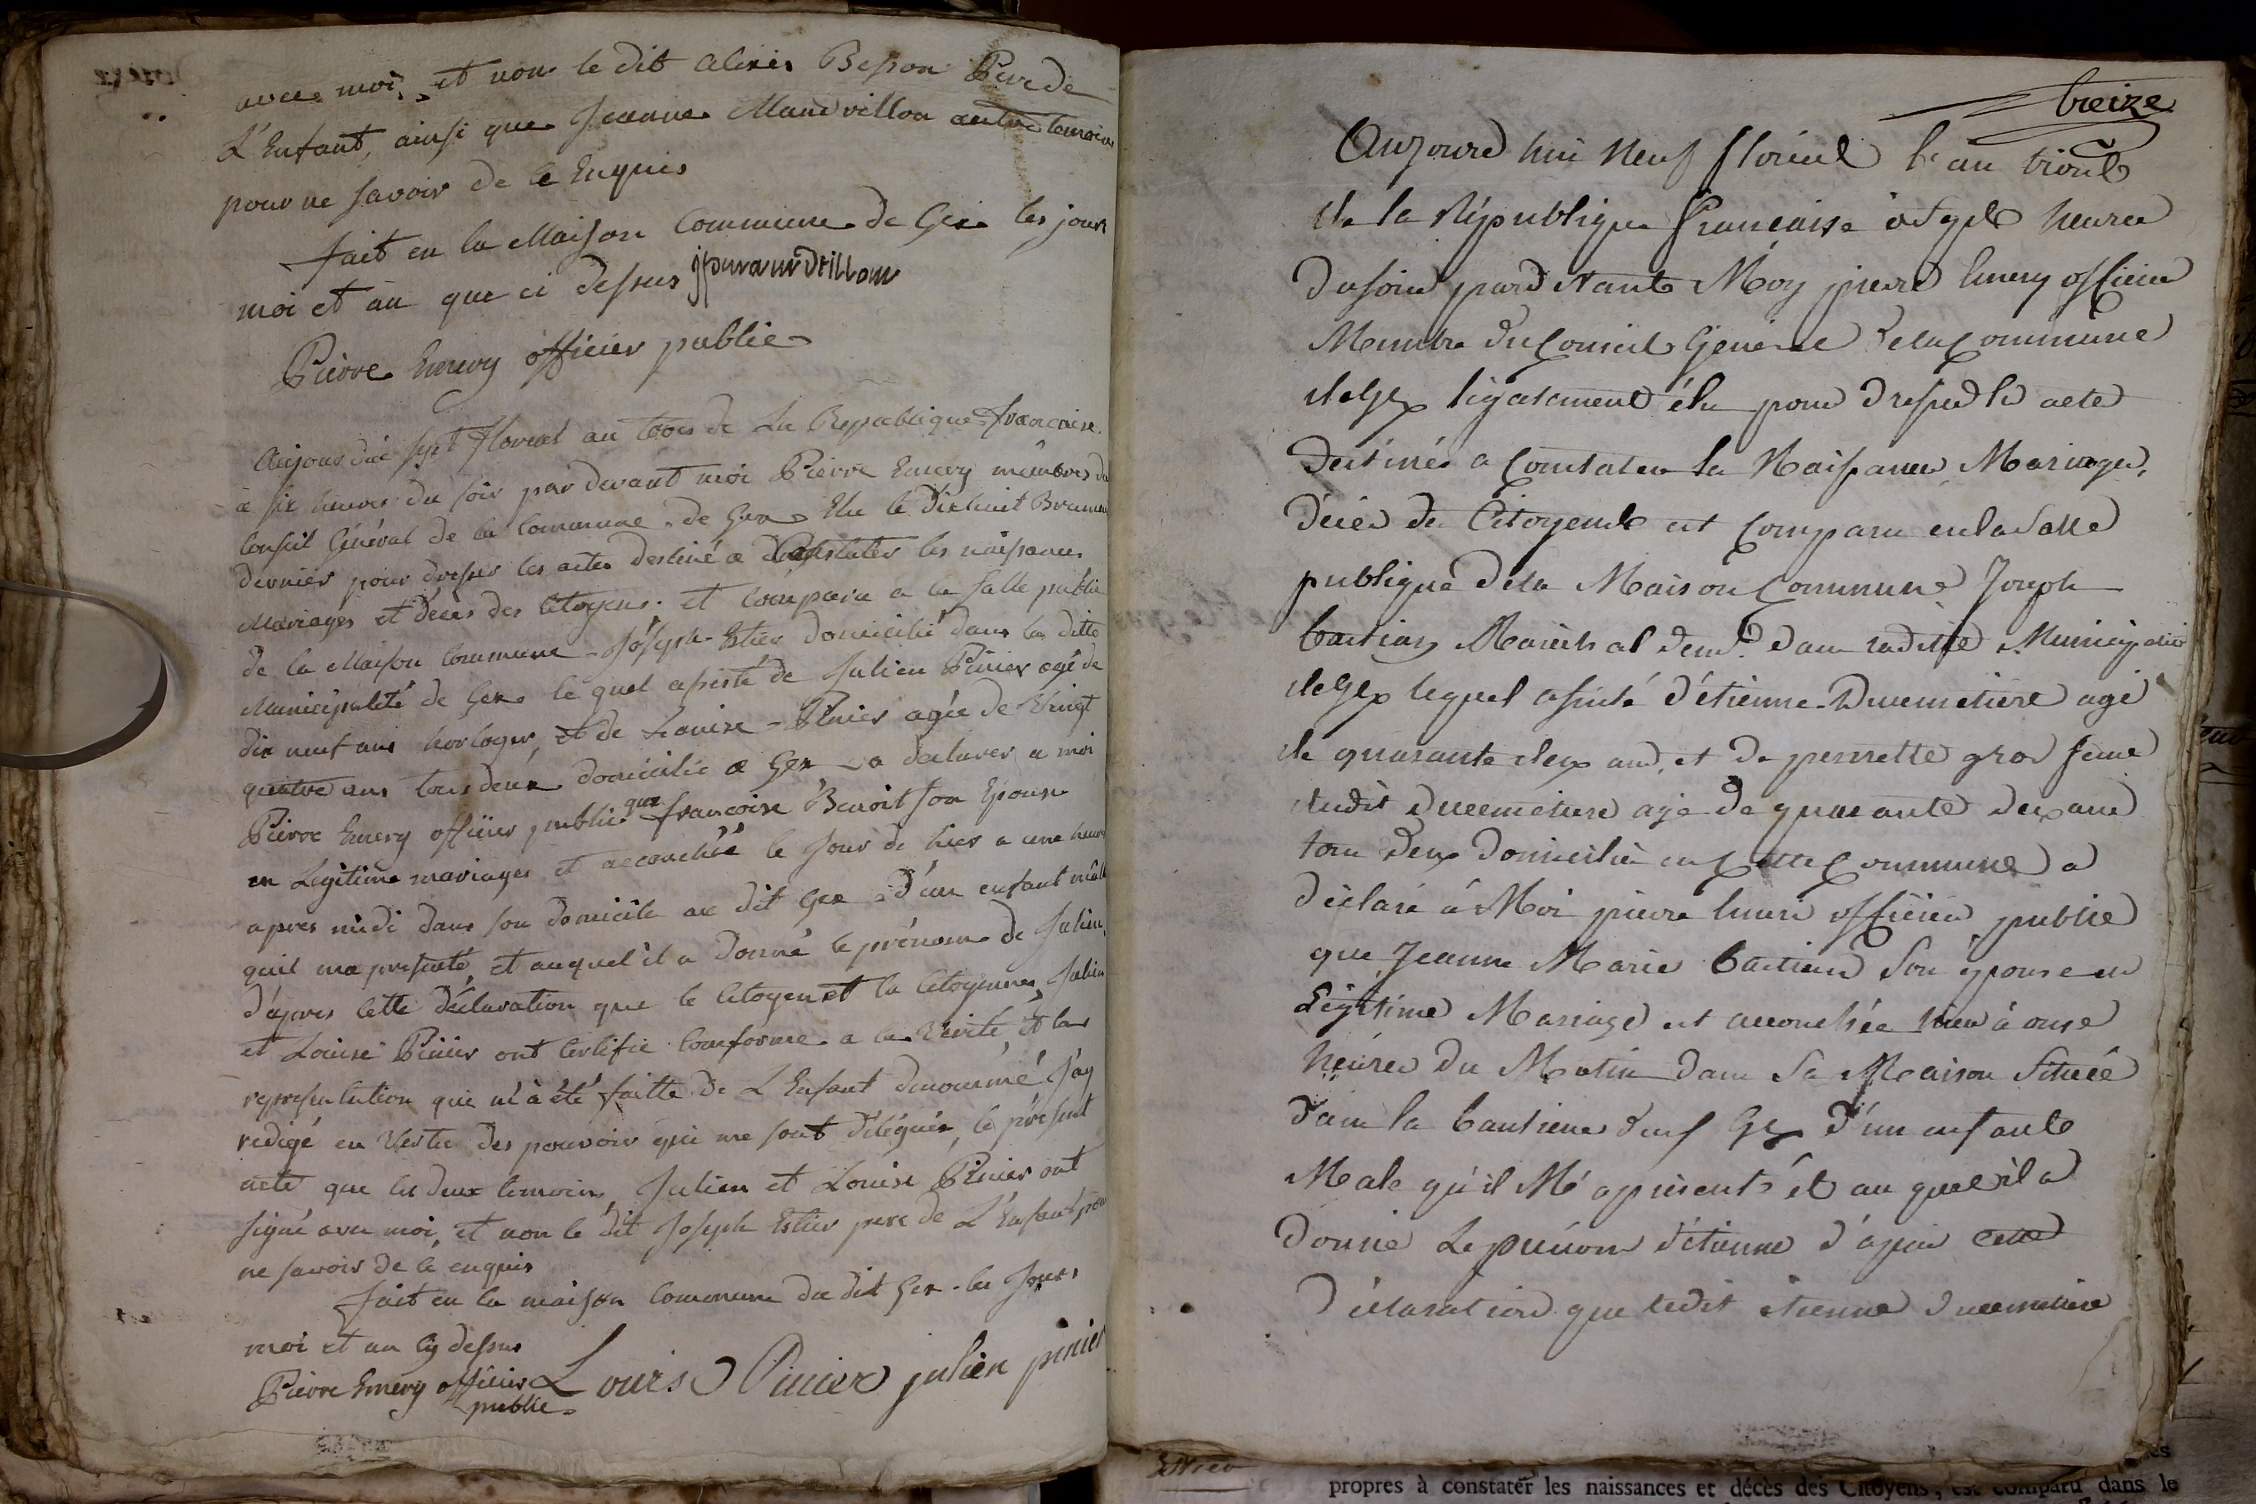 avec moi, et non le dit Alexis Besson Pere de
L'Enfant, ainsi que Jeanne Mandrillon autre temoins
pour ne savoir de ce Enquis
fait en la Maison Commune de Gex les jours
moi et an que ci dessus jpmandrillon
Pierre Emery officier public
Aujourdui sept floreal an trois de La Republique francaise
a six heures du soir par devant moi Pierre Emery membres du
Conseil Général de la Commune de Gex Elu le Dixhuit Brumaire
dernier pour dresser les actes destiné a Constater les naissances
Mariages et déces des Citoyens. et Comparu a la salle public
de la Maison Commune Joseph Estier domicilié dans la ditte
Municipalité de Gex le quel assisté de Julien Pinier agé de
dix neuf ans horloger, et de Louise Pinier agée de Vingt
quatre ans tous deux domicilié a Gex a declarer a moi
Pierre Emery officier public que francoise Benoit son Epouse
en Legitime mariages et accouchéé le Jour de hier a une heure
apres midi dans son domicile au dit Gex d'un enfant mâle
quil ma presenté, et auquel il a Donné le prénom de Julien,
d'apres cette déclaration que le Citoyen et la Citoyennes Julien
et Louise Pinier ont Certifié Conforme a la Vérité, et la
representation qui m'à été faitte de L'Enfant denommé J'ay
redigé en Vertu des pouvoirs qui me sont délégués, le présent
acte que les deux temoins, Julien et Louise Pinier ont
signé avec moi, et non le dit Joseph Estier pere de L'Enfant pour
ne savoir de ce enquis
fait en la maison Commune du dit Gex les Jours
moi et an cy dessus
Pierre Emery officier Louise Pinier julien pinier
public
treize
Aujourd hui Neuf floreal l'an trois
de la République francaise à sept heures
du soir pardevant Moy pierre Emery officier
Membre du Conseil Géneral de la Commune
de Gex légalement élu pour dresser le acte
destinés a Constater la Naissances, Mariages,
décès des Citoyens est Comparu en la Salle
publique de la Maison Commune Joseph
bastian Maréchal dem.t dans ladite Municipalité
de Gex lequel assisté d'étienne Ducemetiere agé
de quarante deux ans, et de pernette gros feme
dudit Ducemetiere agé de quarante deux ans
tous deux domiciliés en Cette Commune a
déclaré à Moi pierre Emeri officier public
que Jeanne Marie bastian Son épouse en
Légitime Mariage est accouchée hier à onse
heures du Matin dans Sa Maison Située
dans la banlieue de Gex d'un enfant
Male qu'il M'a présenté et au quel il a
donné Le prénom d'étienne d'après cette
déclaration que ledit etienne Ducemetiere
propres à constater les naissances et décès des Citoyens, est comparu dans le